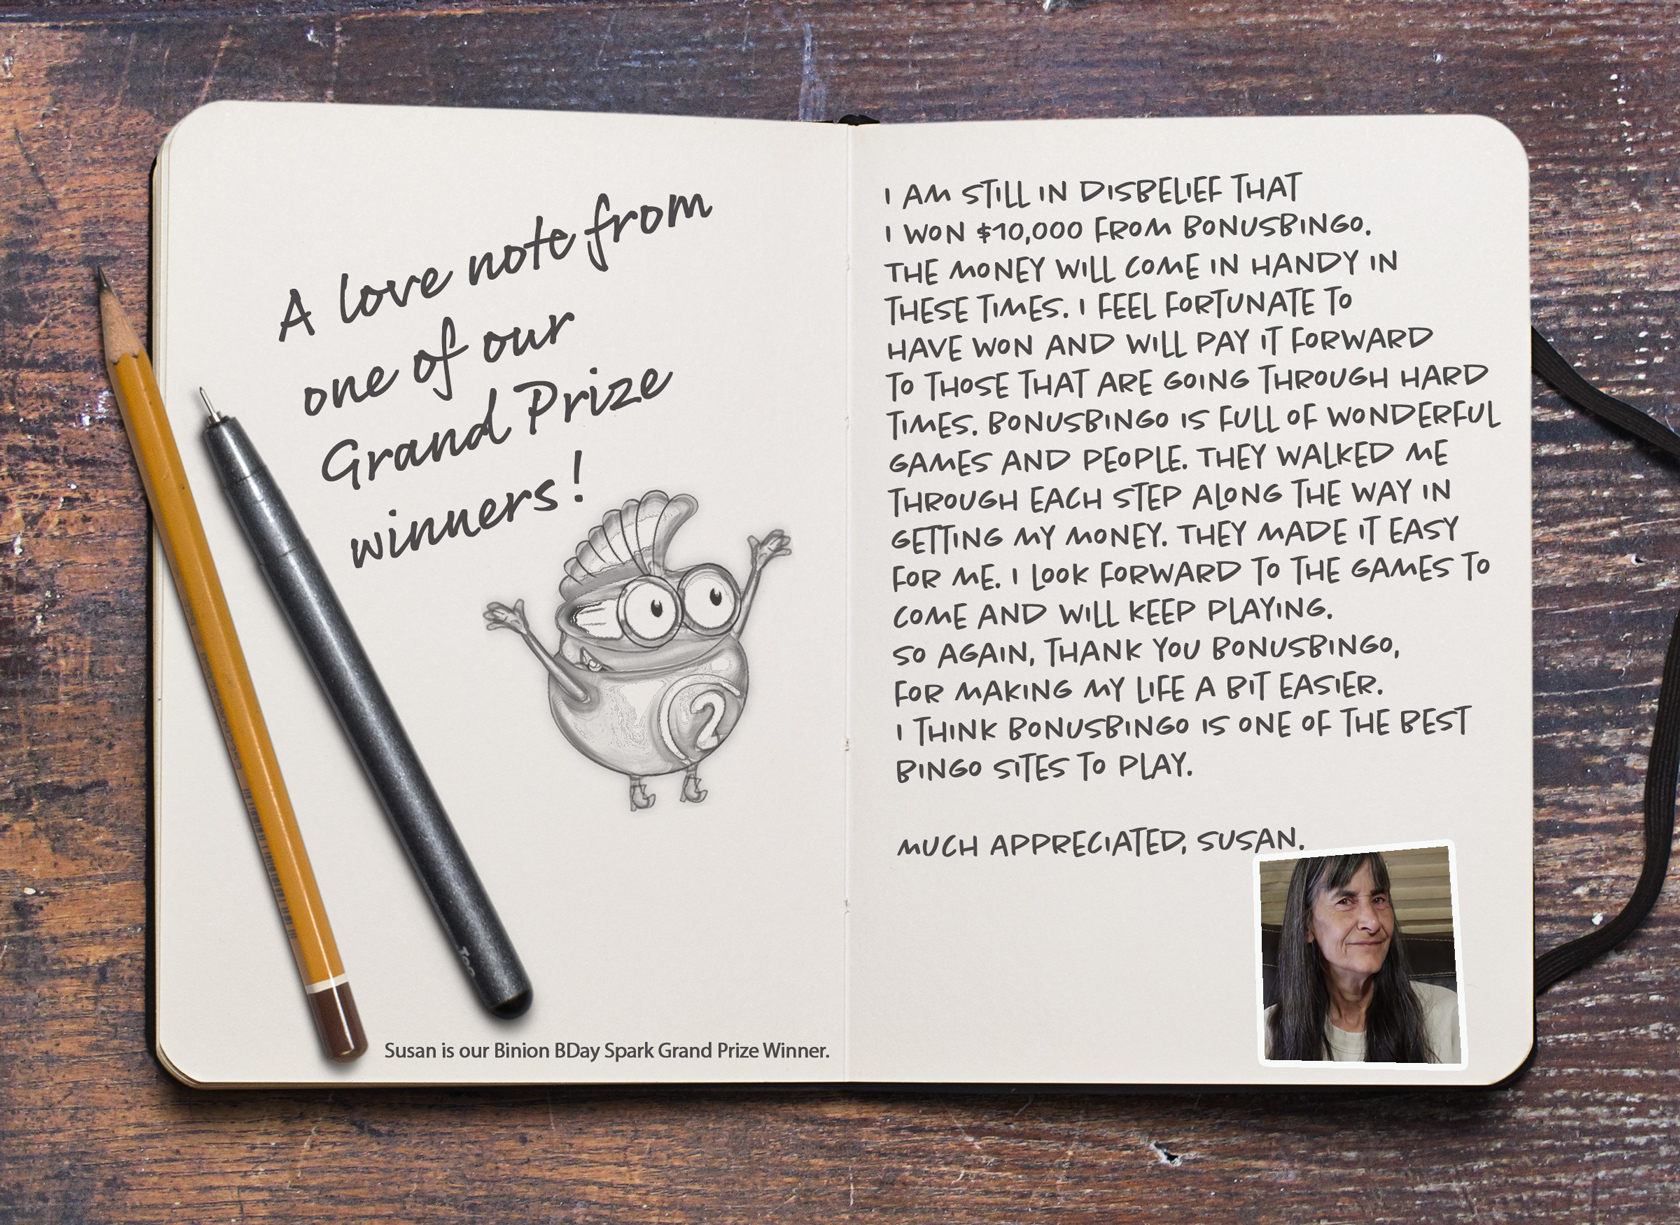 A love note from
one of our
Grand Prize
winners!
2
Susan is our Binion BDay Spark Grand Prize Winner.
I AM STILL IN DISBELIEF THAT
I WON $10,000 FROM BONUSBINGO.
THE MONEY WILL COME IN HANDY IN
THESE TIMES. I FEEL FORTUNATE TO
HAVE WON AND WILL PAY IT FORWARD
TO THOSE THAT ARE GOING THROUGH HARD
TIMES. BONUSBINGO IS FULL OF WONDERFUL
GAMES AND PEOPLE. THEY WALKED ME
THROUGH EACH STEP ALONG THE WAY IN
GETTING MY MONEY. THEY MADE IT EASY
FOR ME. I LOOK FORWARD TO THE GAMES TO
COME AND WILL KEEP PLAYING.
SO AGAIN, THANK YOU BONUSBINGO,
FOR MAKING MY LIFE A BIT EASIER.
I THINK BONUSBINGO IS ONE OF THE BEST
BINGO SITES TO PLAY.
MUCH APPRECIATED, SUSAN.